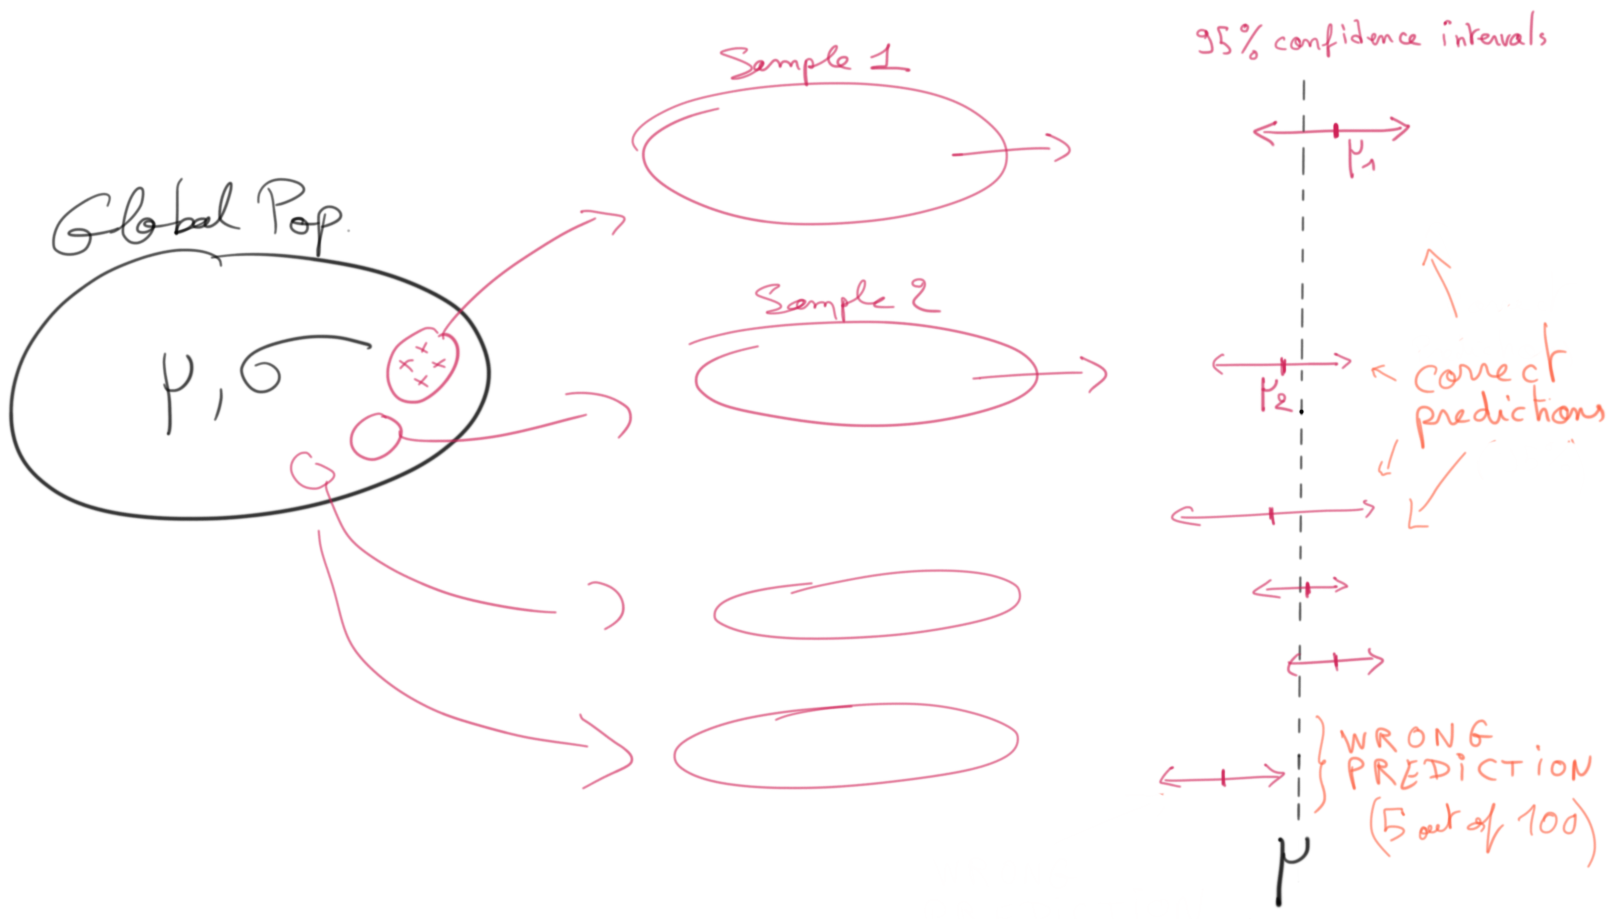 Global Pop.
μ, σ
Sample 1
Sample 2
95% confidence intervals
μ1
μ2
correct
predictions
WRONG
PREDiCTiON
(5 out of 100)
μ